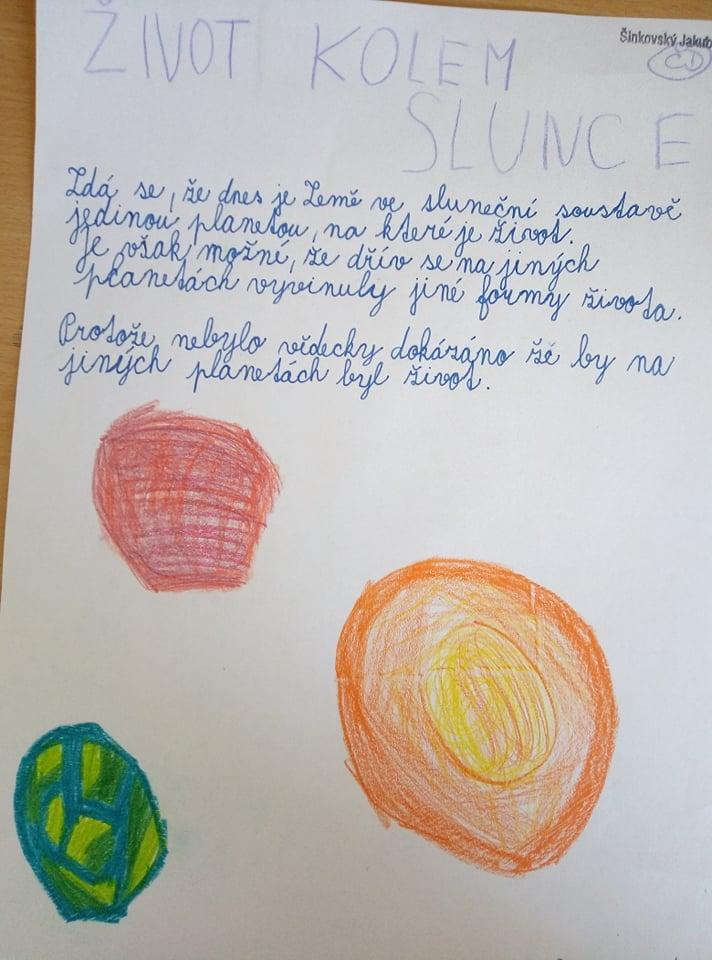 Šinkovský Jakub
ČD
ŽIVOT KOLEM
SLUNCE
Zdá se, že dnes je Země ve sluneční soustavě
jedinou planetou, na které je život.
Je však možné, že dřív se na jiných
planetách vyvinuly jiné formy života.
Protože nebylo vědecky dokázáno že by na
jiných planetách byl život.